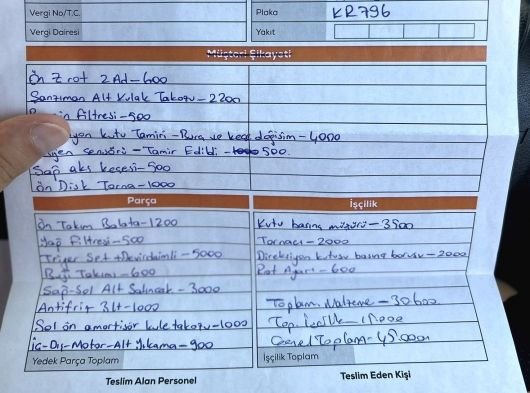 Vergi No/T.C.
Plaka KR796
Vergi Dairesi
Yakıt
Müşteri Şikayeti
Ön Z rot 2 Ad-600
Şanzıman Alt Kulak Takozu-2200
Filtresi-500
kutu Tamiri-Burç ve keçe değişim-4000
sensörü-Tamir Edildi-500.
Sağ aks keçesi-500
Ön Disk Torna-1000
Parça
Ön Takım Balata-1200
Yağ Filtresi-500
Triger Set+Devirdaimli-5000
Buji Takımı-600
Sağ-Sol Alt Salıncak-3000
Antifriz 3Lt-1000
Sol ön amortisör kule takozu-1000
İç-Dış-Motor-Alt Yıkama-900
Yedek Parça Toplam
İşçilik
Kutu basınç müşürü-3500
Tornacı-2000
Direksiyon kutusu basınç borusu-2000
Rot Ayarı-600
Toplam Malzeme-30600
Top. İşçilik
Genel Toplam-45.000
İşçilik Toplam
Teslim Alan Personel
Teslim Eden Kişi